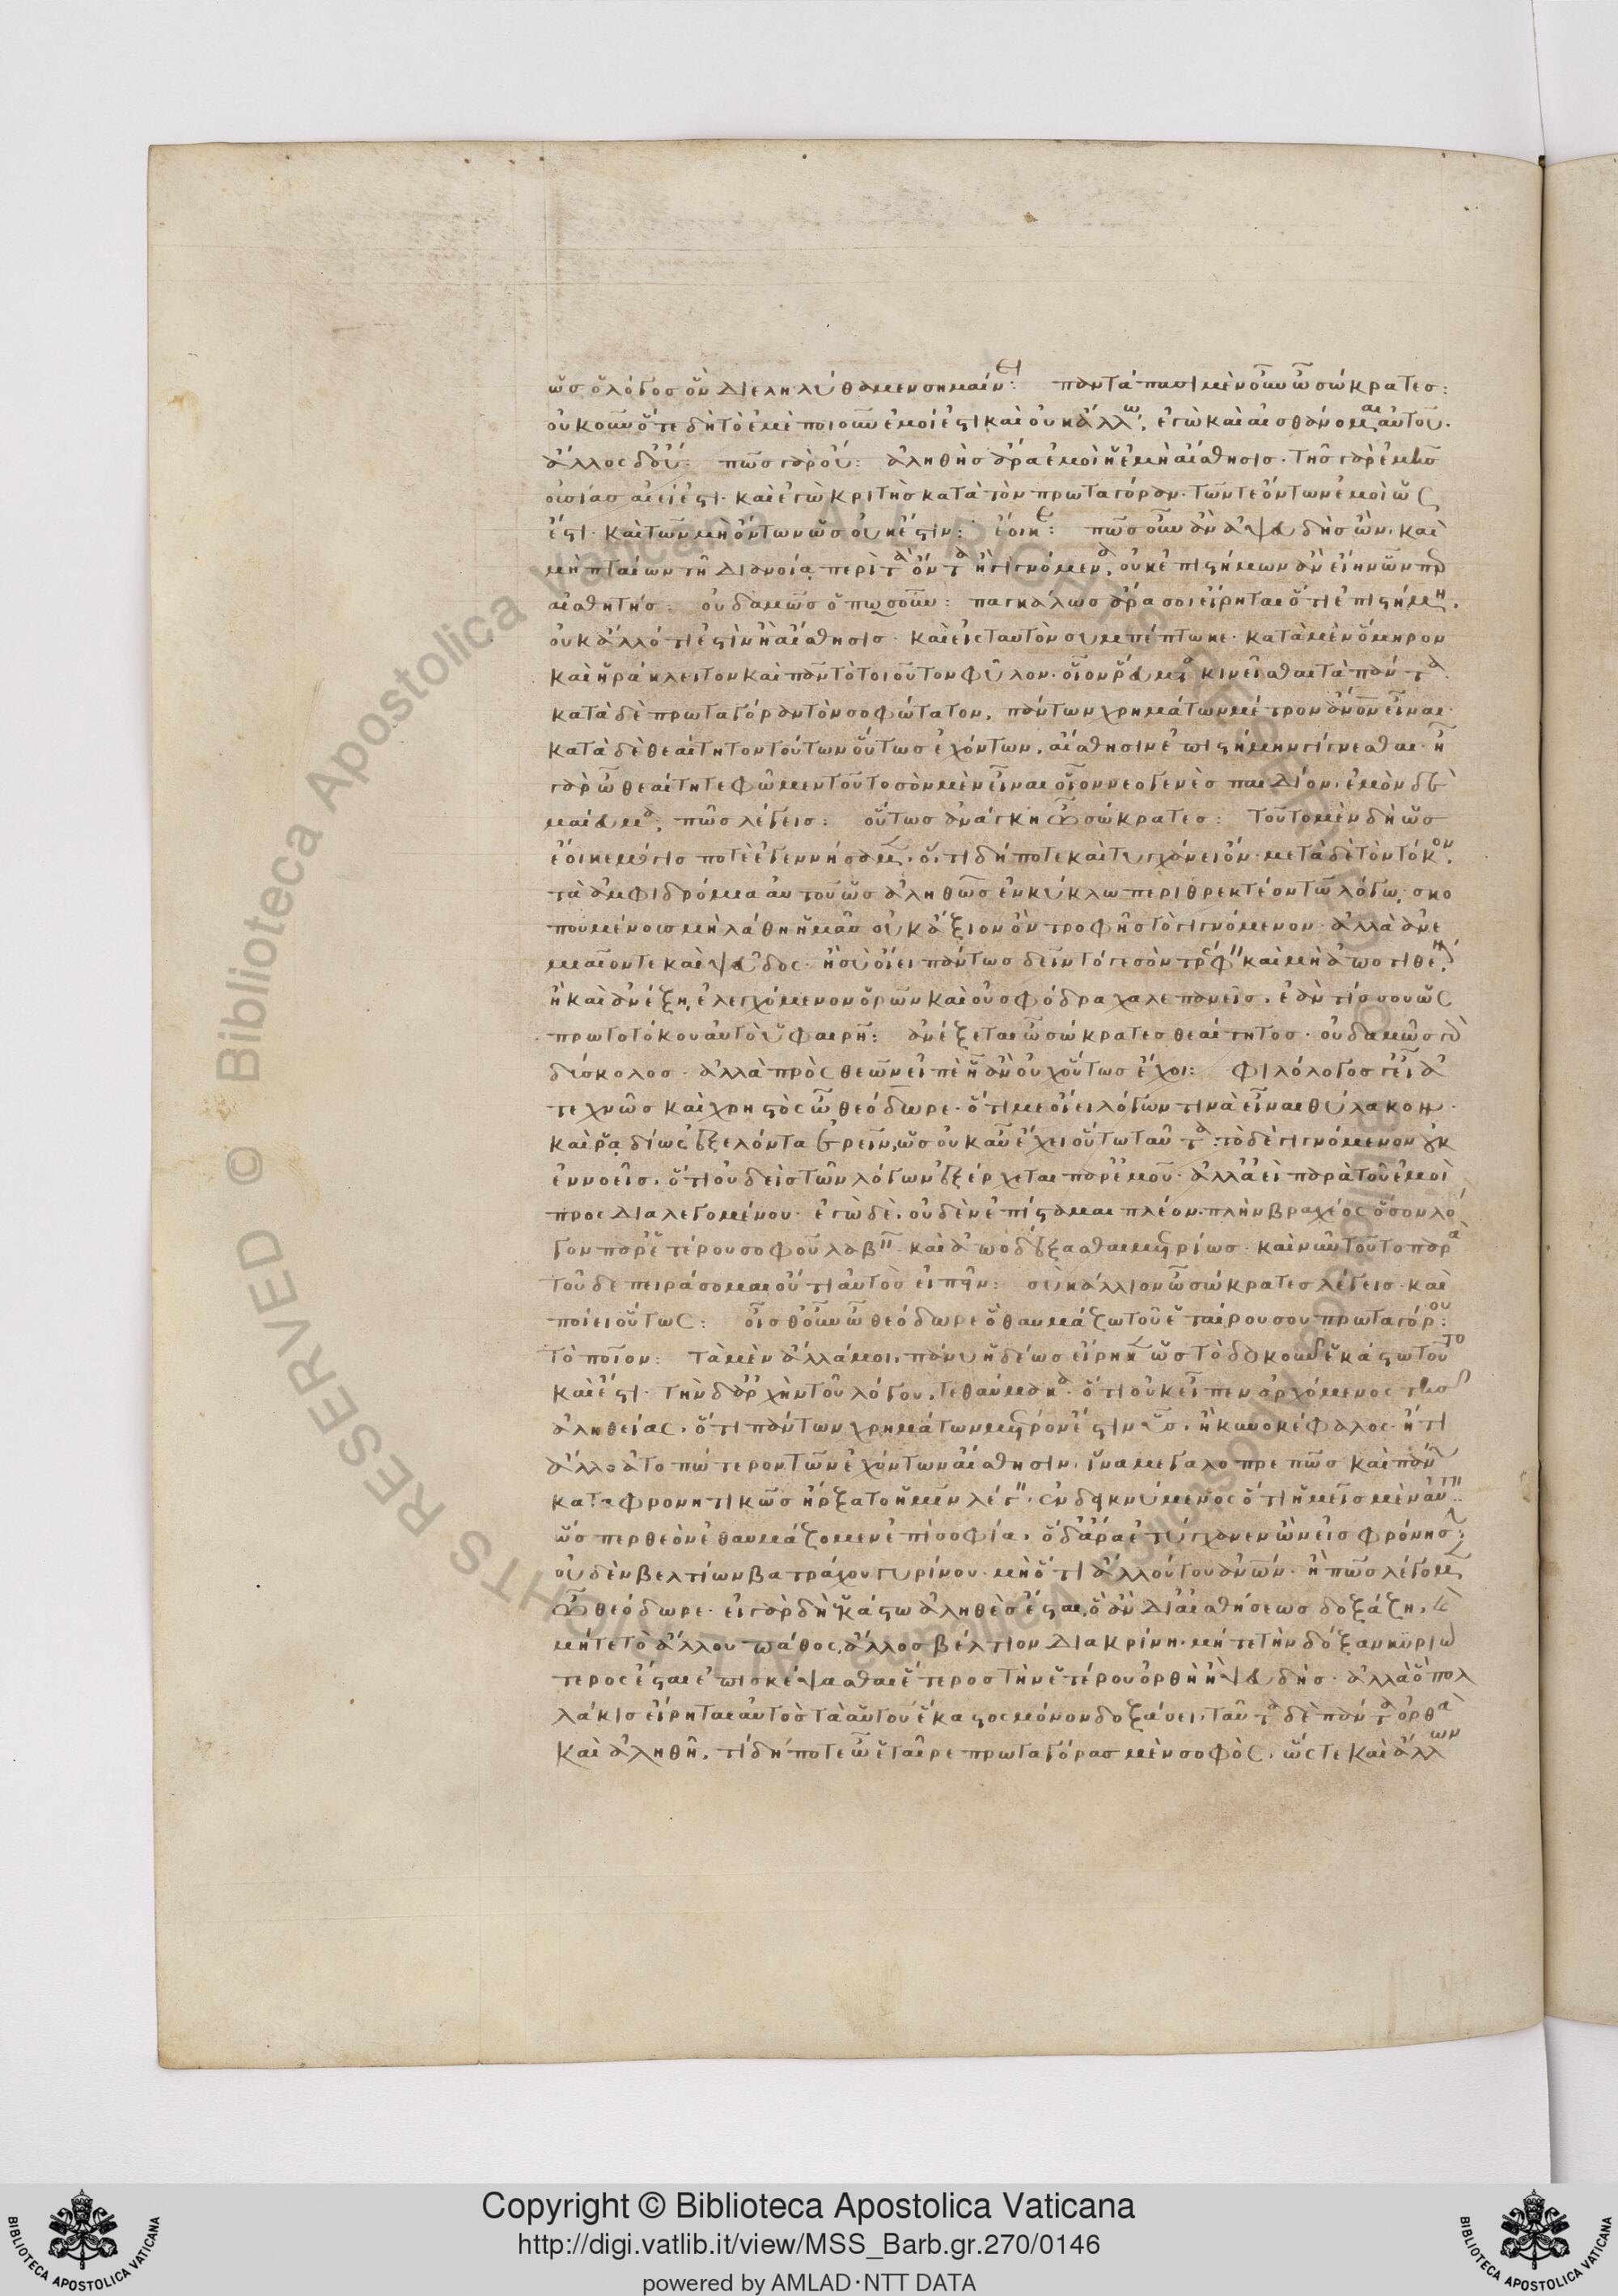 ὡς ὁ λόγος ὃν διεληλύθαμεν σημαίνει: παντάπασι μὲν οὖν ὦ σώκρατες:
οὐκοῦν ὅτε δὴ τὸ ἐμὲ ποιοῦν ἐμοί ἐστι καὶ οὐκ ἄλλω, ἐγὼ καὶ αἰσθάνομαι αὐτοῦ.
ἄλλος δ' οὔ: πῶς γὰρ οὔ: ἀληθὴς ἄρα ἐμοὶ ἡ ἐμὴ αἴσθησις. τῆς γὰρ ἐμῆς
οὐσίας ἀεί ἐστι. καὶ ἐγὼ κριτὴς κατὰ τὸν πρωταγόραν. τῶν τε ὄντων ἐμοὶ ὡς
ἔστι. καὶ τῶν μὴ ὄντων ὡς οὐκ ἔστιν: ἔοικε: πῶς οὖν ἂν ἀψευδὴς ὢν. καὶ
μὴ πταίων τῆ διανοία περὶ τὰ ὄντα ἢ γιγνόμενα, οὐκ ἐπιστήμων ἂν εἴην ὧνπερ
αἰσθητής: οὐδαμῶς ὅπως οὔν: παγκάλως ἄρα σοι εἴρηται ὅτι ἐπιστήμη.
οὐκ ἄλλό τι ἐστὶν ἢ αἴσθησις. καὶ εἰς ταυτὸν συμπέπτωκε. κατὰ μὲν ὅμηρον
καὶ ἡράκλειτον καὶ πᾶν τὸ τοιοῦτον φῦλον. οἷον ῥεύματα κινεῖσθαι τὰ πάντα.
κατὰ δὲ πρωταγόραν τὸν σοφώτατον, πάντων χρημάτων μέτρον ἄνον εἶναι.
κατὰ δὲ θεαίτητον τούτων οὕτως ἐχόντων, αἴσθησιν ἐπιστήμην γίγνεσθαι. ἦ
γὰρ ὦ θεαίτητε φῶμεν τοῦτο σὸν μὲν εἶναι οἷον νεογενὲς παιδίον. ἐμὸν δὲ
μαίευμα; πῶς λέγεις: οὕτως ἀνάγκη ὦ σώκρατες: τοῦτο μὲν δὴ ὡς
ἔοικε μόγις ποτὲ ἐγεννήσαμεν. ὅ, τι δή ποτε καὶ τυγχάνει ὄν. μετὰ δὲ τὸν τόκον,
τὰ ἀμφιδρόμια αὐτοῦ ὡς ἀληθῶς ἐν κύκλω περιθρεκτέον τῶ λόγω, σκο
πουμένους μὴ λάθη ἡμᾶς οὐκ ἄξιον ὂν τροφῆς τὸ γιγνόμενον. ἀλλὰ ἀνε
μιαῖόν τε καὶ ψεῦδος. ἢ σὺ οἴει πάντως δεῖν τό γε σὸν τρέφειν καὶ μὴ ἀποτιθέναι,
ἢ καὶ ἀνέξη, ἐλεγχόμενον ὁρῶν καὶ οὐ σφόδρα χαλεπανεῖς. ἐάν τίς σου ὡς
πρωτοτόκου αὐτὸ ὑφαιρῆ: ἀνέξεται ὦ σώκρατες θεαίτητος. οὐδαμῶς γὰρ
δύσκολος. ἀλλὰ πρὸς θεῶν εἰπὲ ἦ ἂν οὐχ οὕτως ἔχοι: φιλόλογός γ' εἶ ἀ
τεχνῶς καὶ χρηστὸς ὦ θεόδωρε. ὅτι με οἴει λόγων τινὰ εἶναι θύλακον.
καὶ ῥαδίως ἐξελόντα ἐρεῖν, ὡς οὐκ αὖ ἔχει οὕτω ταῦτα. τὸ δὲ γιγνόμενον οὐκ
ἐννοεῖς. ὅτι οὐδεὶς τῶν λόγων ἐξέρχεται παρ' ἐμοῦ. ἀλλ' ἀεὶ παρὰ τοῦ ἐμοὶ
προςδιαλεγομένου. ἐγὼ δὲ, οὐδὲν ἐπίσταμαι πλέον, πλὴν βραχέος ὅσον λό
γον παρ' ἑτέρου σοφοῦ λαβεῖν. καὶ ἀποδέξασθαι μετρίως. καὶ νῦν τοῦτο παρὰ
τοῦδε πειράσομαι οὔτι αὐτὸς εἰπεῖν: σὺ κάλλιον ὦ σώκρατες λέγεις. καὶ
ποίει οὕτως: οἶσθ' οὖν ὦ θεόδωρε ὃ θαυμάζω τοῦ ἑταίρου σου πρωταγόρου:
τὸ ποῖον: τὰ μὲν ἄλλά μοι, πάνυ ἡδέως εἴρηκεν ὡς τὸ δοκοῦν ἑκάστω τοῦτο
καὶ ἔστι. τὴν δ' ἀρχὴν τοῦ λόγου, τεθαύμακα. ὅτι οὐκ εἶπεν ἀρχόμενος τῆς
ἀληθείας, ὅτι πάντων χρημάτων μέτρόν ἐστιν ὗς, ἢ κυνοκέφαλος. ἤ τι
ἄλλο ἀτοπώτερον τῶν ἐχόντων αἴσθησιν. ἵνα μεγαλοπρεπῶς καὶ πάνυ
καταφρονητικῶς ἤρξατο ἡμῖν λέγειν, ἐνδεικνύμενος ὅτι ἡμεῖς μὲν αὐτὸν
ὥσπερ θεὸν ἐθαυμάζομεν ἐπὶ σοφία, ὃ δ' ἄρα ἐτύγχανεν ὢν εἰς φρόνησιν,
οὐδὲν βελτίων βατράχου γυρίνου. μὴ ὅτι ἄλλου του ἀνῶν. ἢ πῶς λέγομεν
ὦ θεόδωρε. εἰ γὰρ δὴ ἑκάστω ἀληθὲς ἔσται, ὃ ἂν δι' αἰσθήσεως δοξάζη, καὶ
μήτε τὸ ἄλλου πάθος, ἄλλος βέλτιον διακρίνη. μήτε τὴν δόξαν κυριώ
τερος ἔσται ἐπισκέψασθαι ἕτερος τὴν ἑτέρου ὀρθὴ ἢ ψευδής. ἀλλὰ ὃ πολ
λάκις εἴρηται αὐτὸς τὰ αὑτοῦ ἕκαστος μόνον δοξάσει, ταῦτα δὲ πάντα ὀρθὰ
καὶ ἀληθῆ, τί δή ποτε ὦ ἑταῖρε πρωταγόρας μὲν σοφὸς, ὥστε καὶ ἄλλων
Copyright © Biblioteca Apostolica Vaticana
http://digi.vatlib.it/view/MSS_Barb.gr.270/0146
powered by AMLAD·NTT DATA
BIBLIOTECA APOSTOLICA VATICANA
BIBLIOTECA APOSTOLICA VATICANA